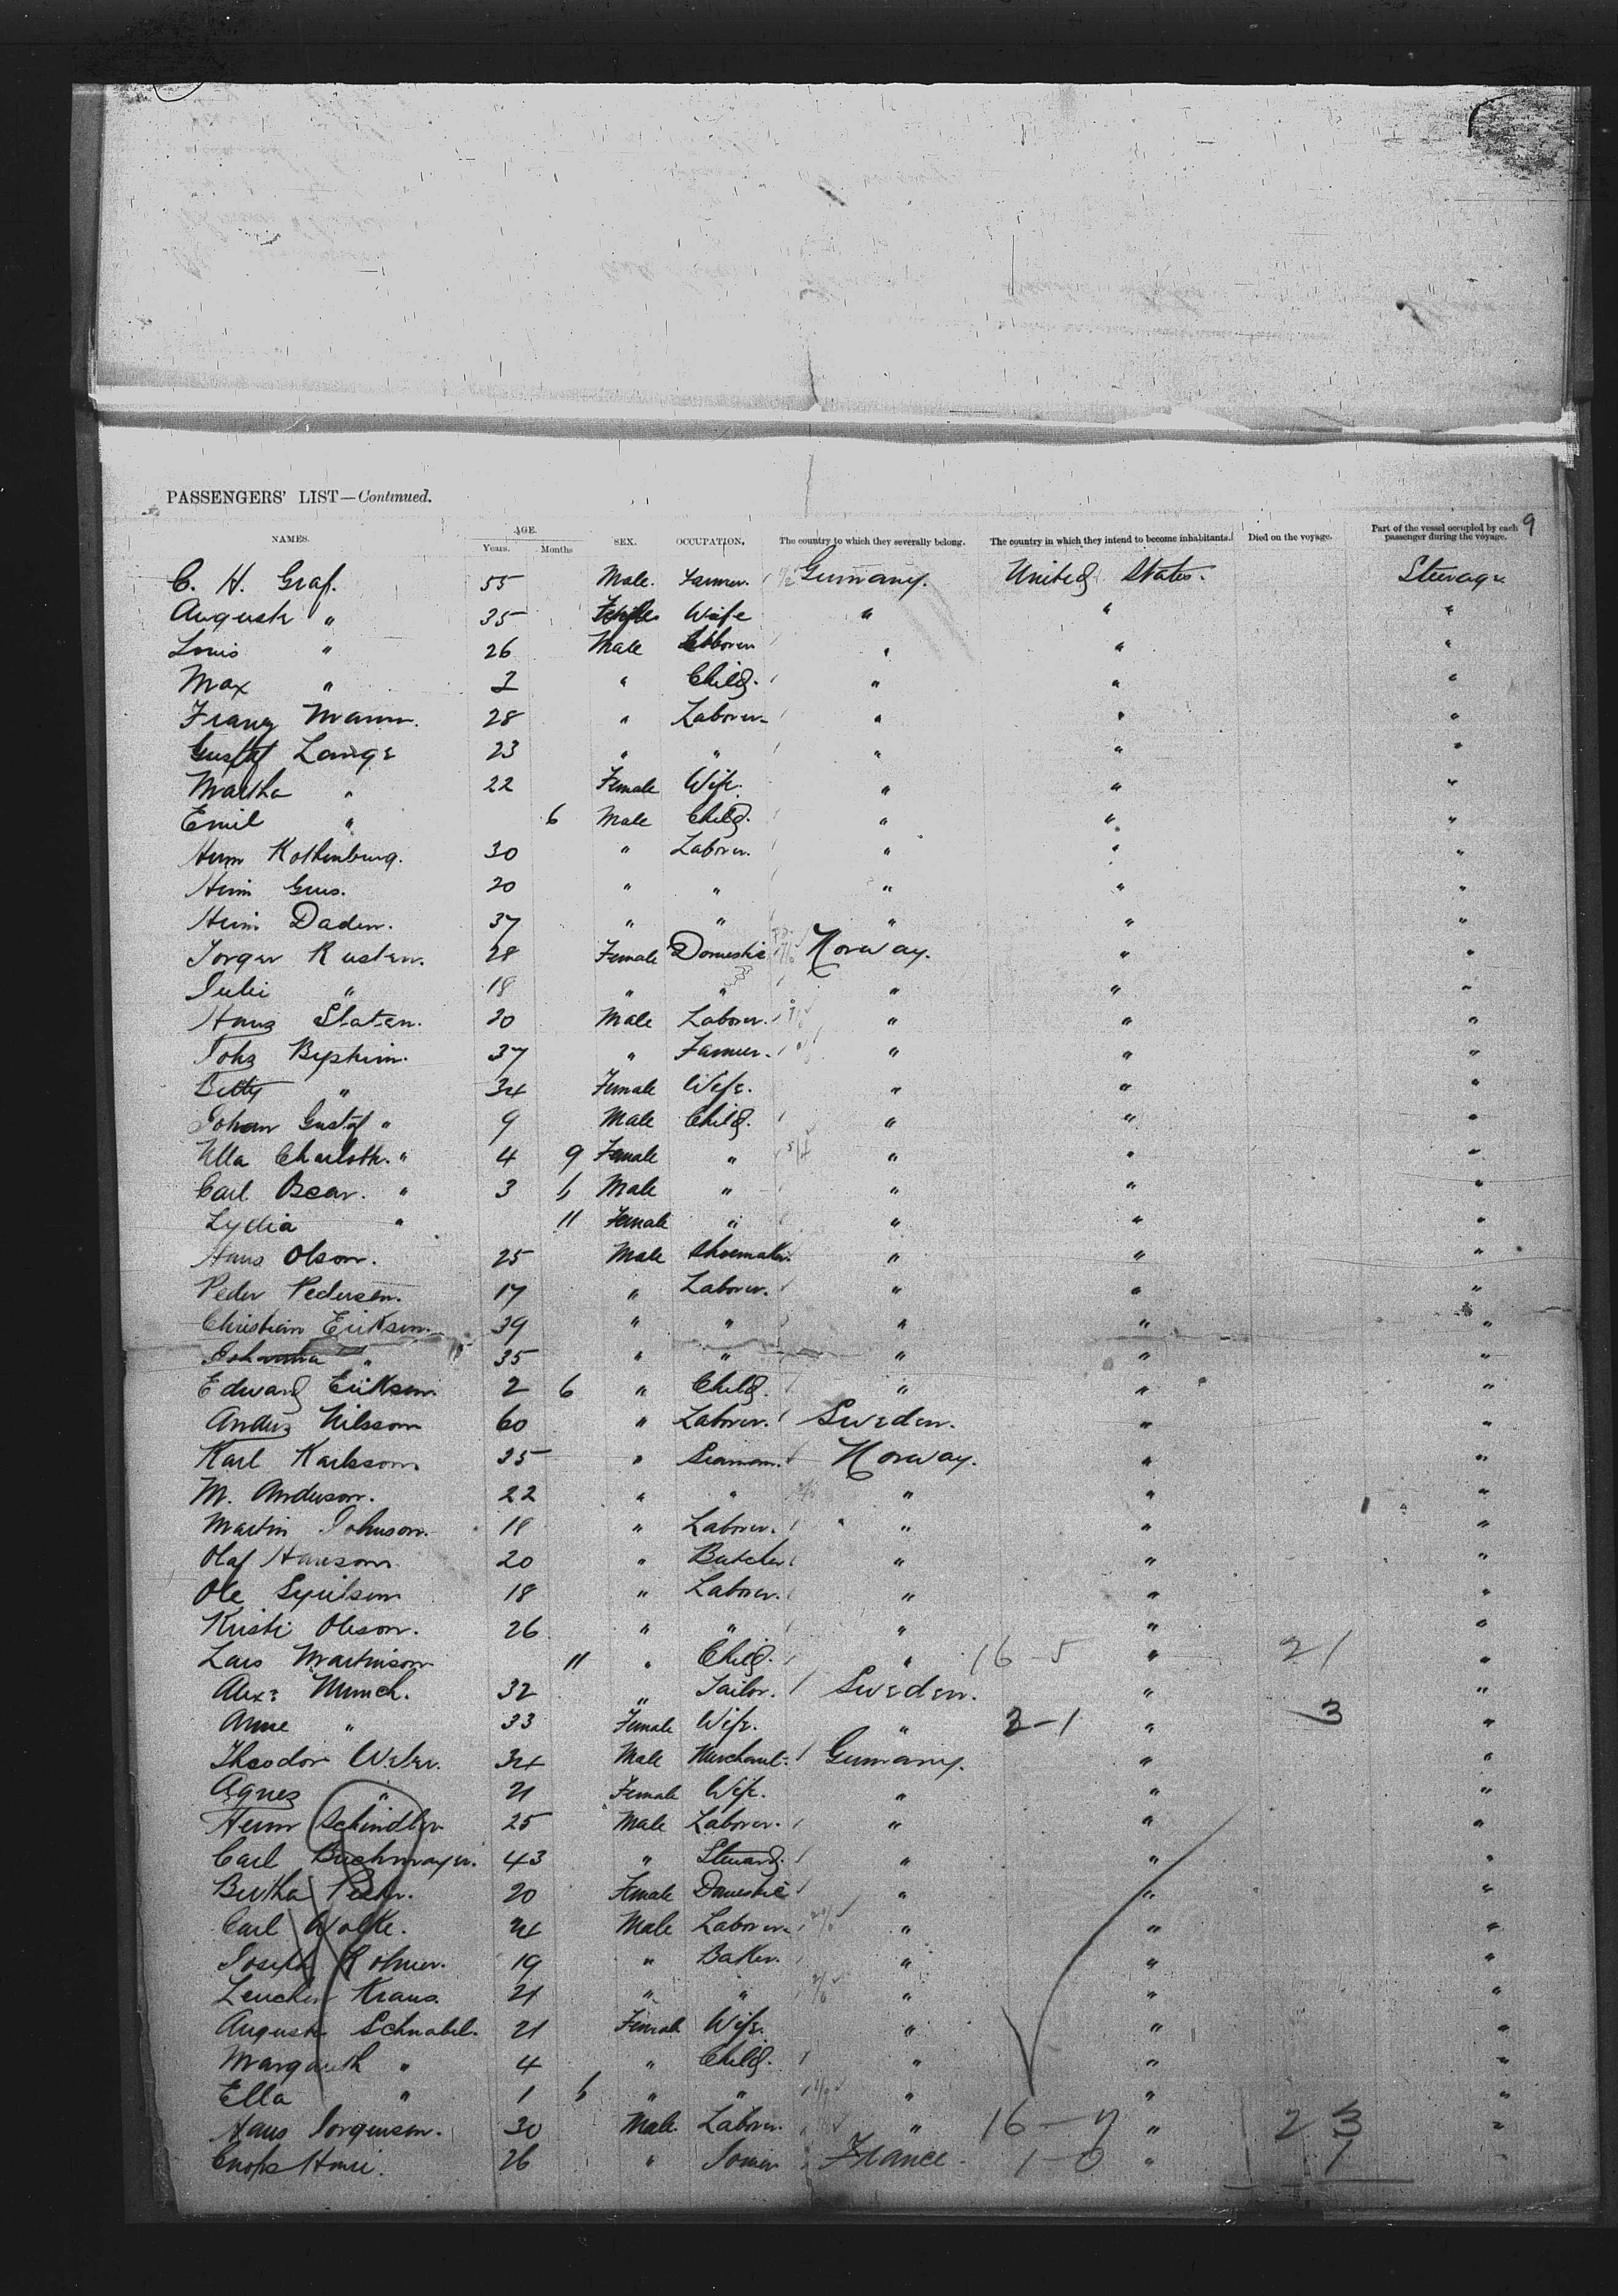 PASSENGERS' LIST—Continued.
9
NAMES. AGE. Years. Months SEX. OCCUPATION. The country to which they severally belong. The country in which they intend to become inhabitants. Died on the voyage. Part of the vessel occupied by each passenger during the voyage.
C. H. Graf. 55 Male. Farmer. Germany. United States. Steerage
August " 35 Wife " " "
Louis " 26 Male Laborer " " "
Max " 2 " Child. " " "
Franz Mann. 28 " Laborer " " "
Gustaf Lange 23 " " " " "
Martha " 22 Female Wife. " " "
Emil " 6 Male Child. " " "
Herm Rothenburg. 30 " Laborer. " " "
Herm 20 " " " " "
Herm Daden. 37 " " " " "
Jorger Rusten. 28 Female Domestic Norway. " "
Julie " 18 " " " " "
Hans Slaten. 20 Male Laborer. " " "
Johs 37 " Farmer. " " "
Betty " 34 Female Wife. " " "
Johan Gustaf " 9 Male Child. " " "
Ulla Charlotte " 4 9 Female " " " "
Carl Oscar. " 3 6 Male " " " "
Lydia " 11 Female " " " "
Hans Olson. 25 Male Shoemaker. " " "
Peder Pedersen. 17 " Laborer. " " "
Christian Eriksen. 39 " " " " "
Johanna " 35 " " " " "
Edward Eriksen 2 6 " Child. " " "
Anders Nilsson 60 " Laborer. Sweden. " "
Karl Karlsson 25 " Seaman. Norway. " "
M. Anderson. 22 " " " " "
Martin Johnson. 18 " Laborer. " " "
Olaf Hanson 20 " Butcher " " "
Ole 18 " Laborer. " " "
Kristi Oleson. 26 " " " " "
Lars Martinson 11 " Child. " 16-5 " 21 "
Alex: Munch. 32 " Tailor. Sweden. " "
Anne " 33 Female Wife. " 2-1 " 3 "
Theodor Weber. 34 Male Merchant. Germany. " "
Agnes " 21 Female Wife. " " "
Herm Schindler 25 Male Laborer. " " "
Carl Buchmayer. 43 " Steward. " " "
Bertha 20 Female Domestic " " "
Carl Wolke. 24 Male Laborer. " " "
Joseph Rohner. 19 " Baker. " " "
Lenchen Kraus. 21 " " " " "
August Schnabel. 21 Female Wife. " " "
Margareth " 4 " Child. " " "
Ella " 1 6 " " " " "
Hans Jorgensen. 30 Male. Laborer. " 16-7 " 23 "
Henri. 26 " Joiner France. 1-0 " 1 "